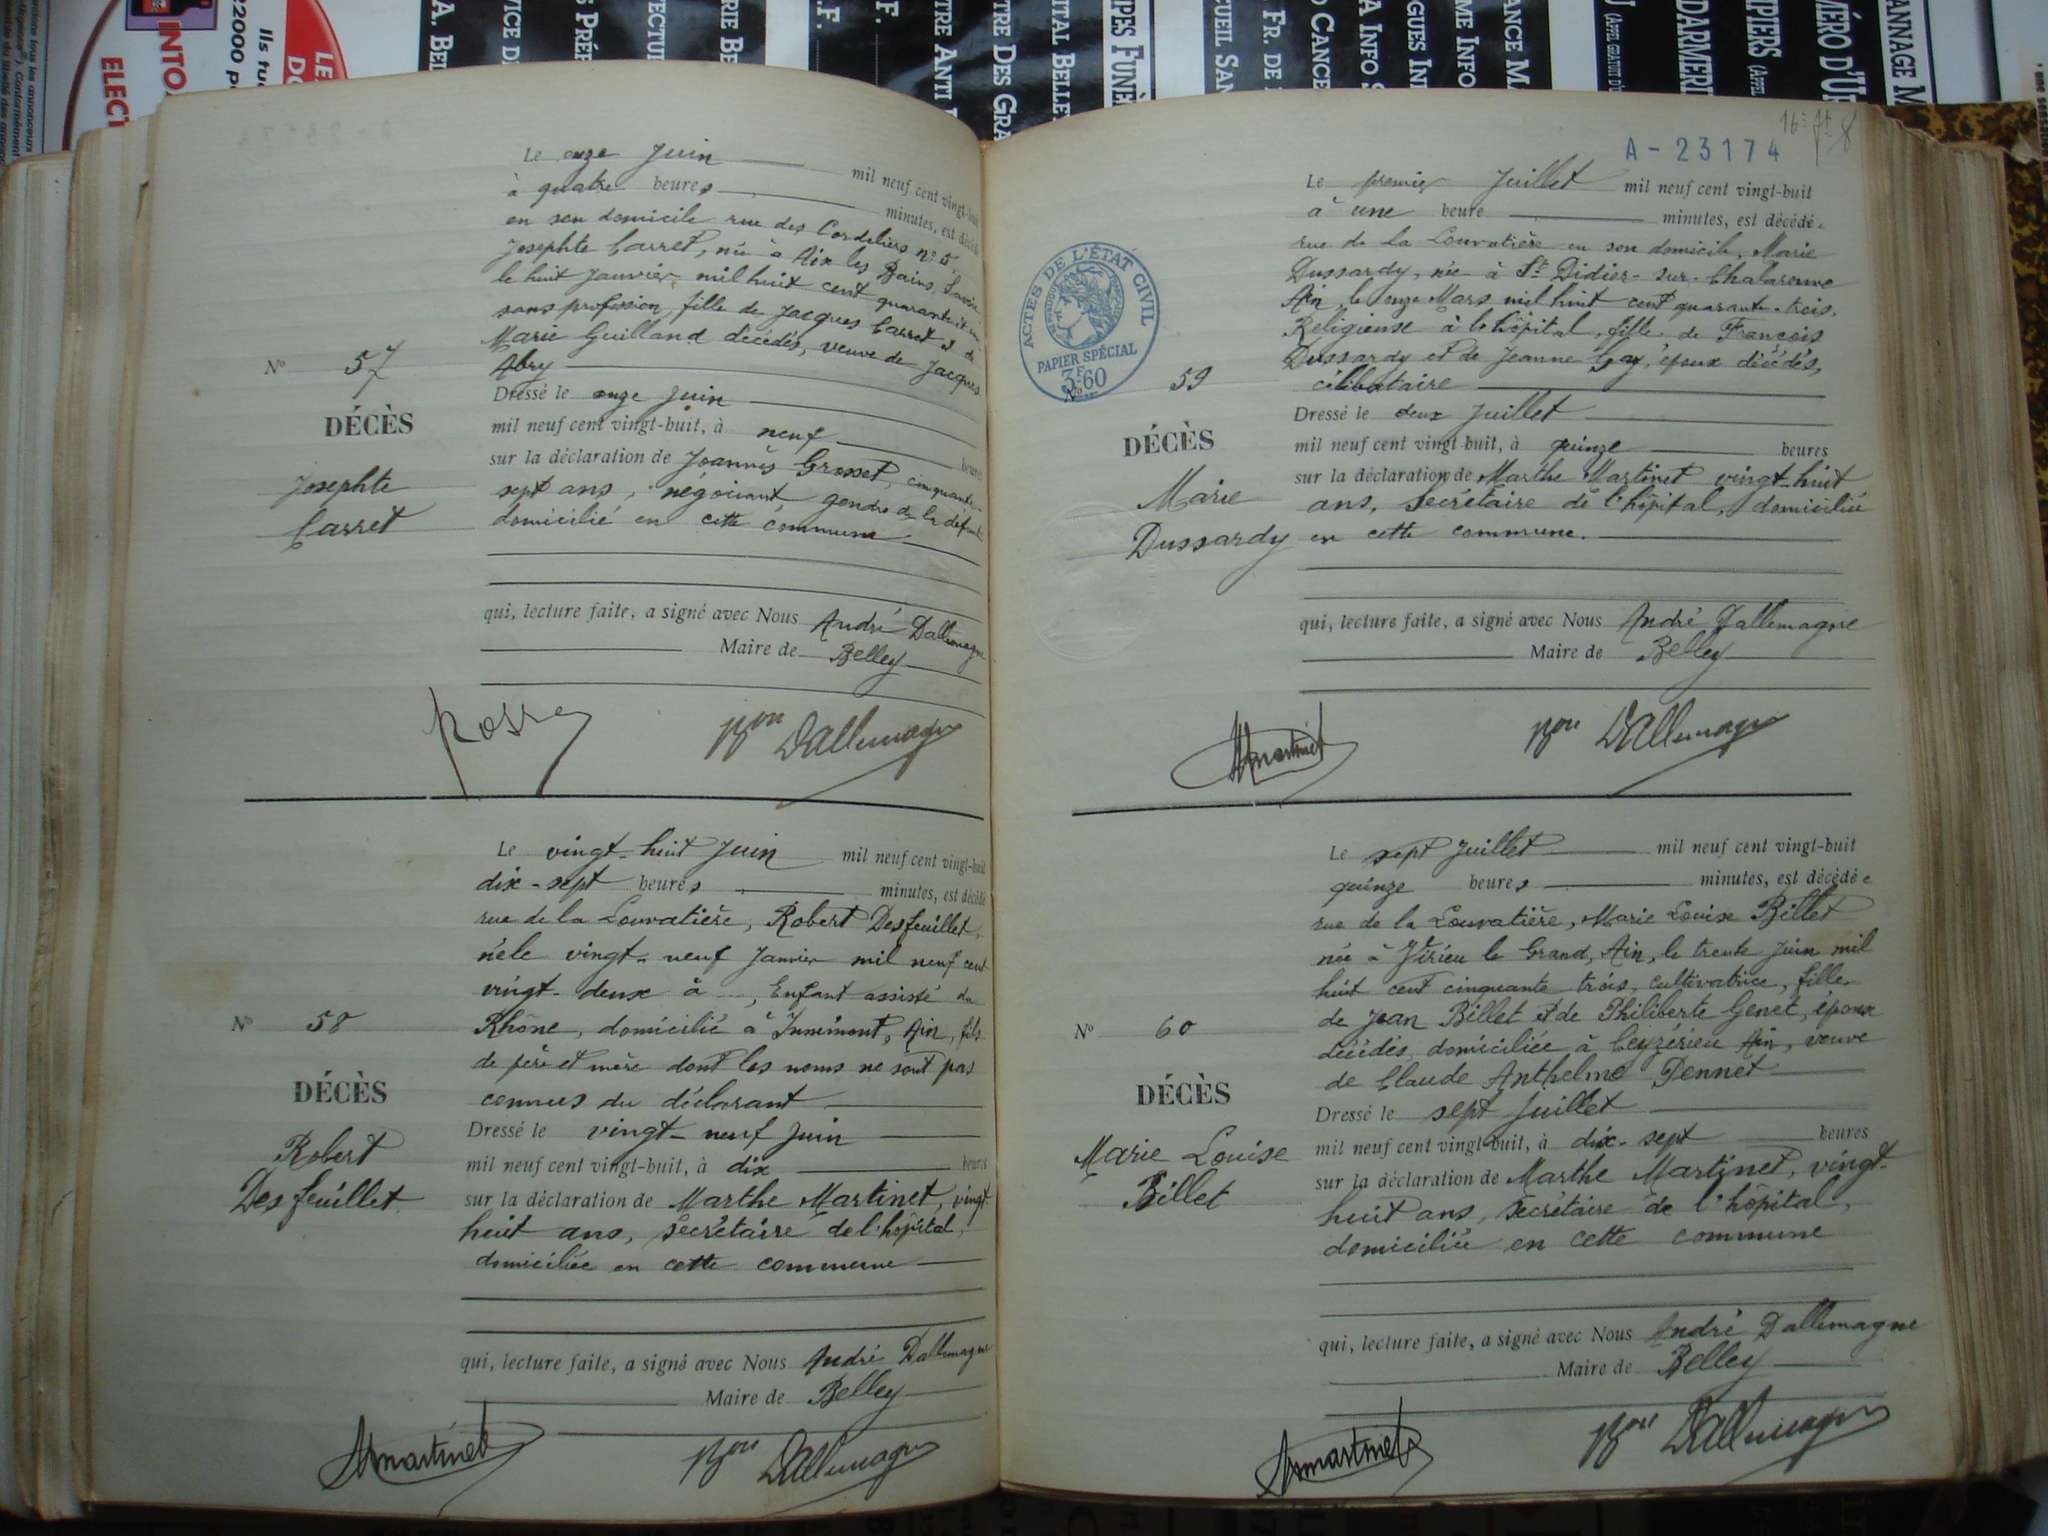 Le onze Juin mil neuf cent vingt-huit
à quatre heures minutes, est décédé
en son domicile rue des Cordeliers n° 5,
Josephte Carret, née à Aix les Bains, Savoie
le huit Janvier mil huit cent quarante et un
sans profession, fille de Jacques Carret et de
Marie Guilland décédés, veuve de Jacques
Abry
N° 57
DÉCÈS
Josephte
Carret
Dressé le onze Juin
mil neuf cent vingt-huit, à neuf heures
sur la déclaration de Joannès Grosset, cinquante-
sept ans, négociant gendre de la défunte
domicilié en cette commune
qui, lecture faite, a signé avec Nous André Dallemagne
Maire de Belley
Bon Dallemagne
Le vingt-huit Juin mil neuf cent vingt-huit
dix-sept heures minutes, est décédé
rue de la Louvatière, Robert Desfeuillet,
né le vingt-neuf Janvier mil neuf cent
vingt-deux à ..., Enfant assisté du
Rhône, domicilié à Inimont, Ain, fils
de père et mère dont les noms ne sont pas
connus du déclarant
N° 58
DÉCÈS
Robert
Desfeuillet
Dressé le vingt-neuf Juin
mil neuf cent vingt-huit, à dix heures
sur la déclaration de Marthe Martinet, vingt-
huit ans, secrétaire de l'hôpital,
domiciliée en cette commune
qui, lecture faite, a signé avec Nous André Dallemagne
Maire de Belley
Mmartinet
Bon Dallemagne
A-23174
ACTES DE L'ÉTAT CIVIL
PAPIER SPÉCIAL
3F60
Le premier Juillet mil neuf cent vingt-huit
à une heure minutes, est décédée
rue de la Louvatière en son domicile, Marie
Dussardy, née à St Didier-sur-Chalaronne
Ain, le onze Mars mil huit cent quarante-trois,
Religieuse à l'hôpital, fille de François
Dussardy et de Jeanne Gay, époux décédés,
célibataire
N° 59
DÉCÈS
Marie
Dussardy
Dressé le deux Juillet
mil neuf cent vingt-huit, à quinze heures
sur la déclaration de Marthe Martinet vingt-huit
ans, secrétaire de l'hôpital, domiciliée
en cette commune.
qui, lecture faite, a signé avec Nous André Dallemagne
Maire de Belley
Mmartinet
Bon Dallemagne
Le sept Juillet mil neuf cent vingt-huit
quinze heures minutes, est décédée
rue de la Louvatière, Marie Louise Billet
née à Virieu le Grand, Ain, le trente Juin mil
huit cent cinquante trois, cultivatrice, fille
de Jean Billet et de Philiberte Genet, époux
décédés, domiciliée à Ceyzérieu Ain, veuve
de Claude Anthelme Pennet
N° 60
DÉCÈS
Marie Louise
Billet
Dressé le sept Juillet
mil neuf cent vingt-huit, à dix-sept heures
sur la déclaration de Marthe Martinet, vingt-
huit ans, secrétaire de l'hôpital,
domiciliée en cette commune
qui, lecture faite, a signé avec Nous André Dallemagne
Maire de Belley
Mmartinet
Bon Dallemagne